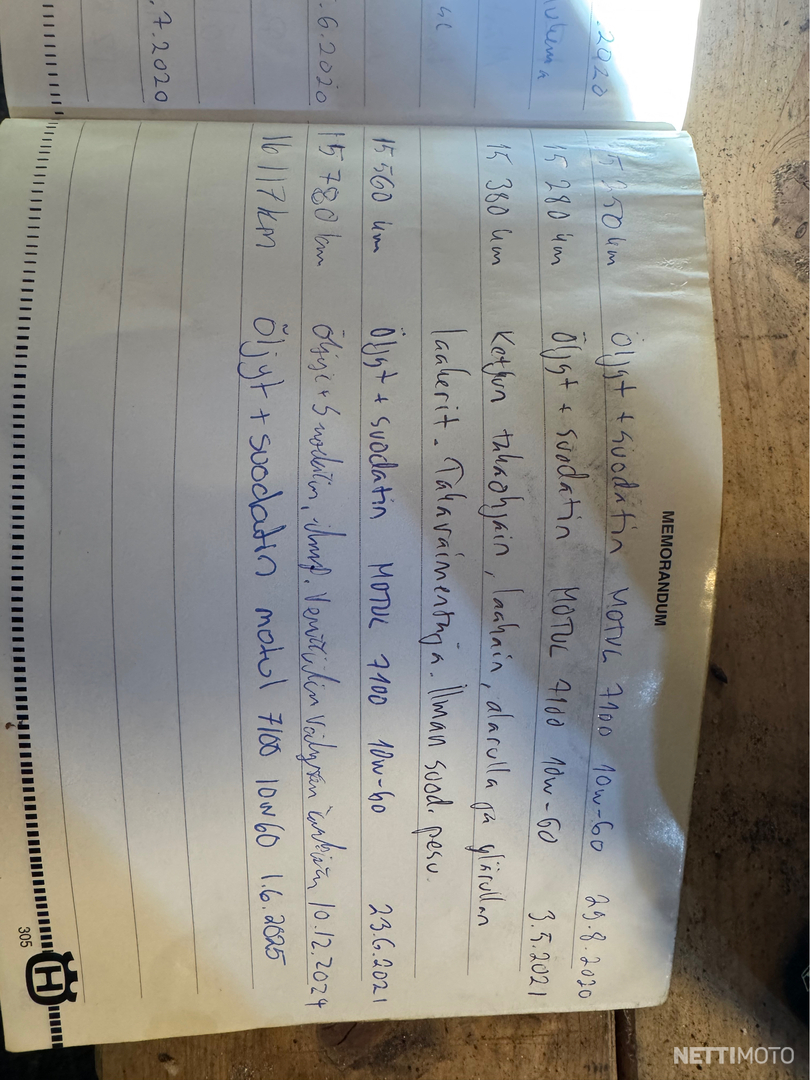 7.2020
6.2020
2020
MEMORANDUM
15 250 km Öljyt + suodatin MOTUL 7100 10w-60 29.8.2020
15 280 km Öljyt + suodatin MOTUL 7100 10w-60 3.5.2021
15 380 km Ketjun takaohjain, laahain, alarulla ja ylärullan
laakerit. Takavaimentaja. Ilman suod. pesu.
15 560 km Öljyt + suodatin MOTUL 7100 10w-60 23.6.2021
15 780 km Öljyt + Suodatin, ilmas. Venttiilin välysten 10.12.2024
16 117 km Öljyt + suodatin motul 7100 10W60 1.6.2025
305
H
NETTIMOTO